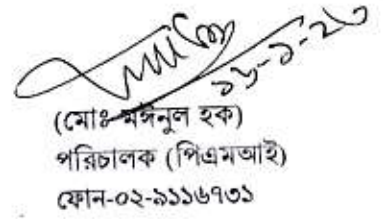 ১৬-১-২৩
(মোঃ মঈনুল হক)
পরিচালক (পিএমআই)
ফোন-০২-৯১১৬৭৩১